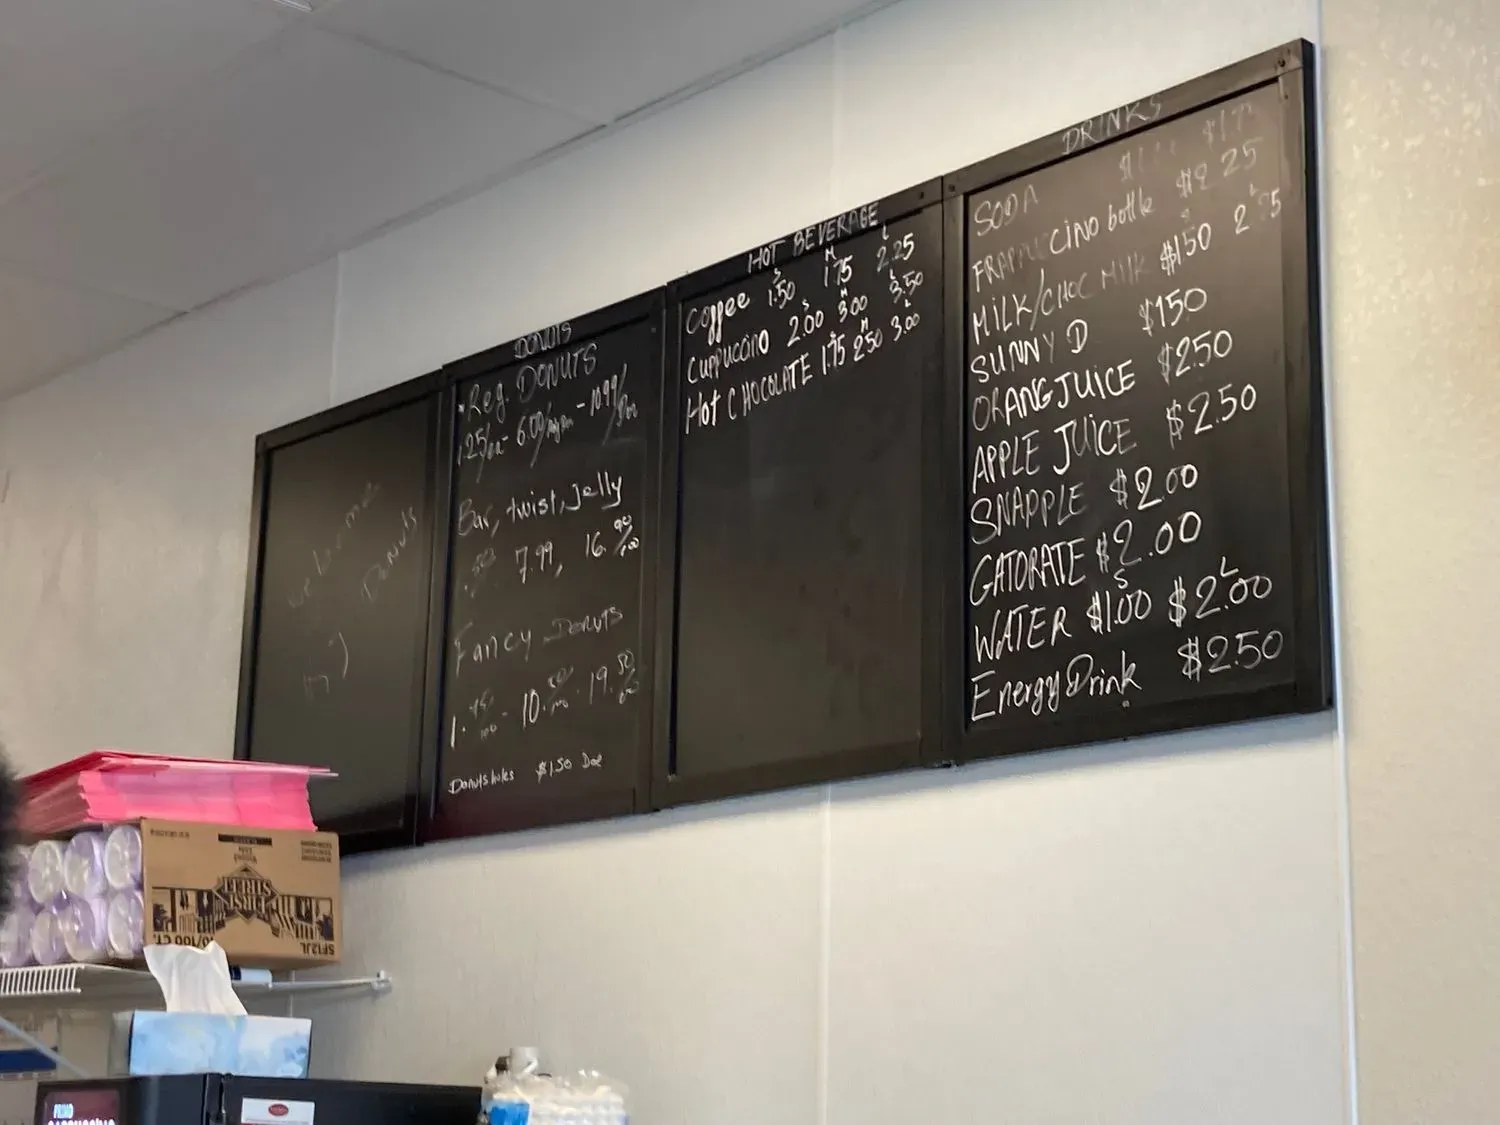 welcome
Donuts
:)
DONUTS
Reg. DONUTS
1.25/ea - 6.00/ - 10.99/
Bar, twist, Jelly
7.99, 16.90
Fancy Donuts
1. 10. 19.50
Donuts holes $1.50 Doz
HOT BEVERAGE
S M L
Coffee 1.50 1.75 2.25
S M L
Cuppuccino 2.00 3.00 3.50
S M L
Hot CHOCOLATE 1.75 2.50 3.00
DRINKS
SODA
FRAPPUCCINO bottle $2 25
L
MILK/CHOC MILK $150 2.75
SUNNY D $150
ORANGJUICE $2.50
APPLE JUICE $2.50
SNAPPLE $2.00
GATORATE $2.00
S L
WATER $1.00 $2.00
Energy Drink $2.50
FIRST STREET
SF12JL
10/100 CT.